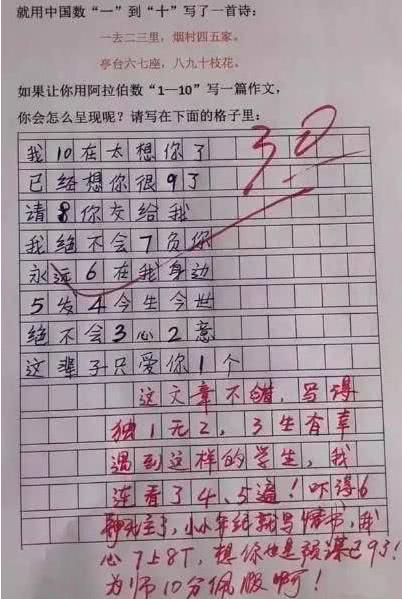 就用中国数“一”到“十”写了一首诗:
一去二三里，烟村四五家。
亭台六七座，八九十枝花。
如果让你用阿拉伯数“1—10”写一篇作文，
你会怎么呈现呢？请写在下面的格子里：
30
我10在太想你了
已经想你很9了
请8你交给我
我绝不会7负你
永远6在我身边
5发4今生今世
绝不会3心2意
这辈子只爱你1个
这文章不错，写得
独1无2，3生有幸
遇到这样的学生，我
连看了4、5遍！吓得6
神无主了，小小年纪就写情书，我
心7上8下，想你也是预谋已9了！
为师10分佩服啊！